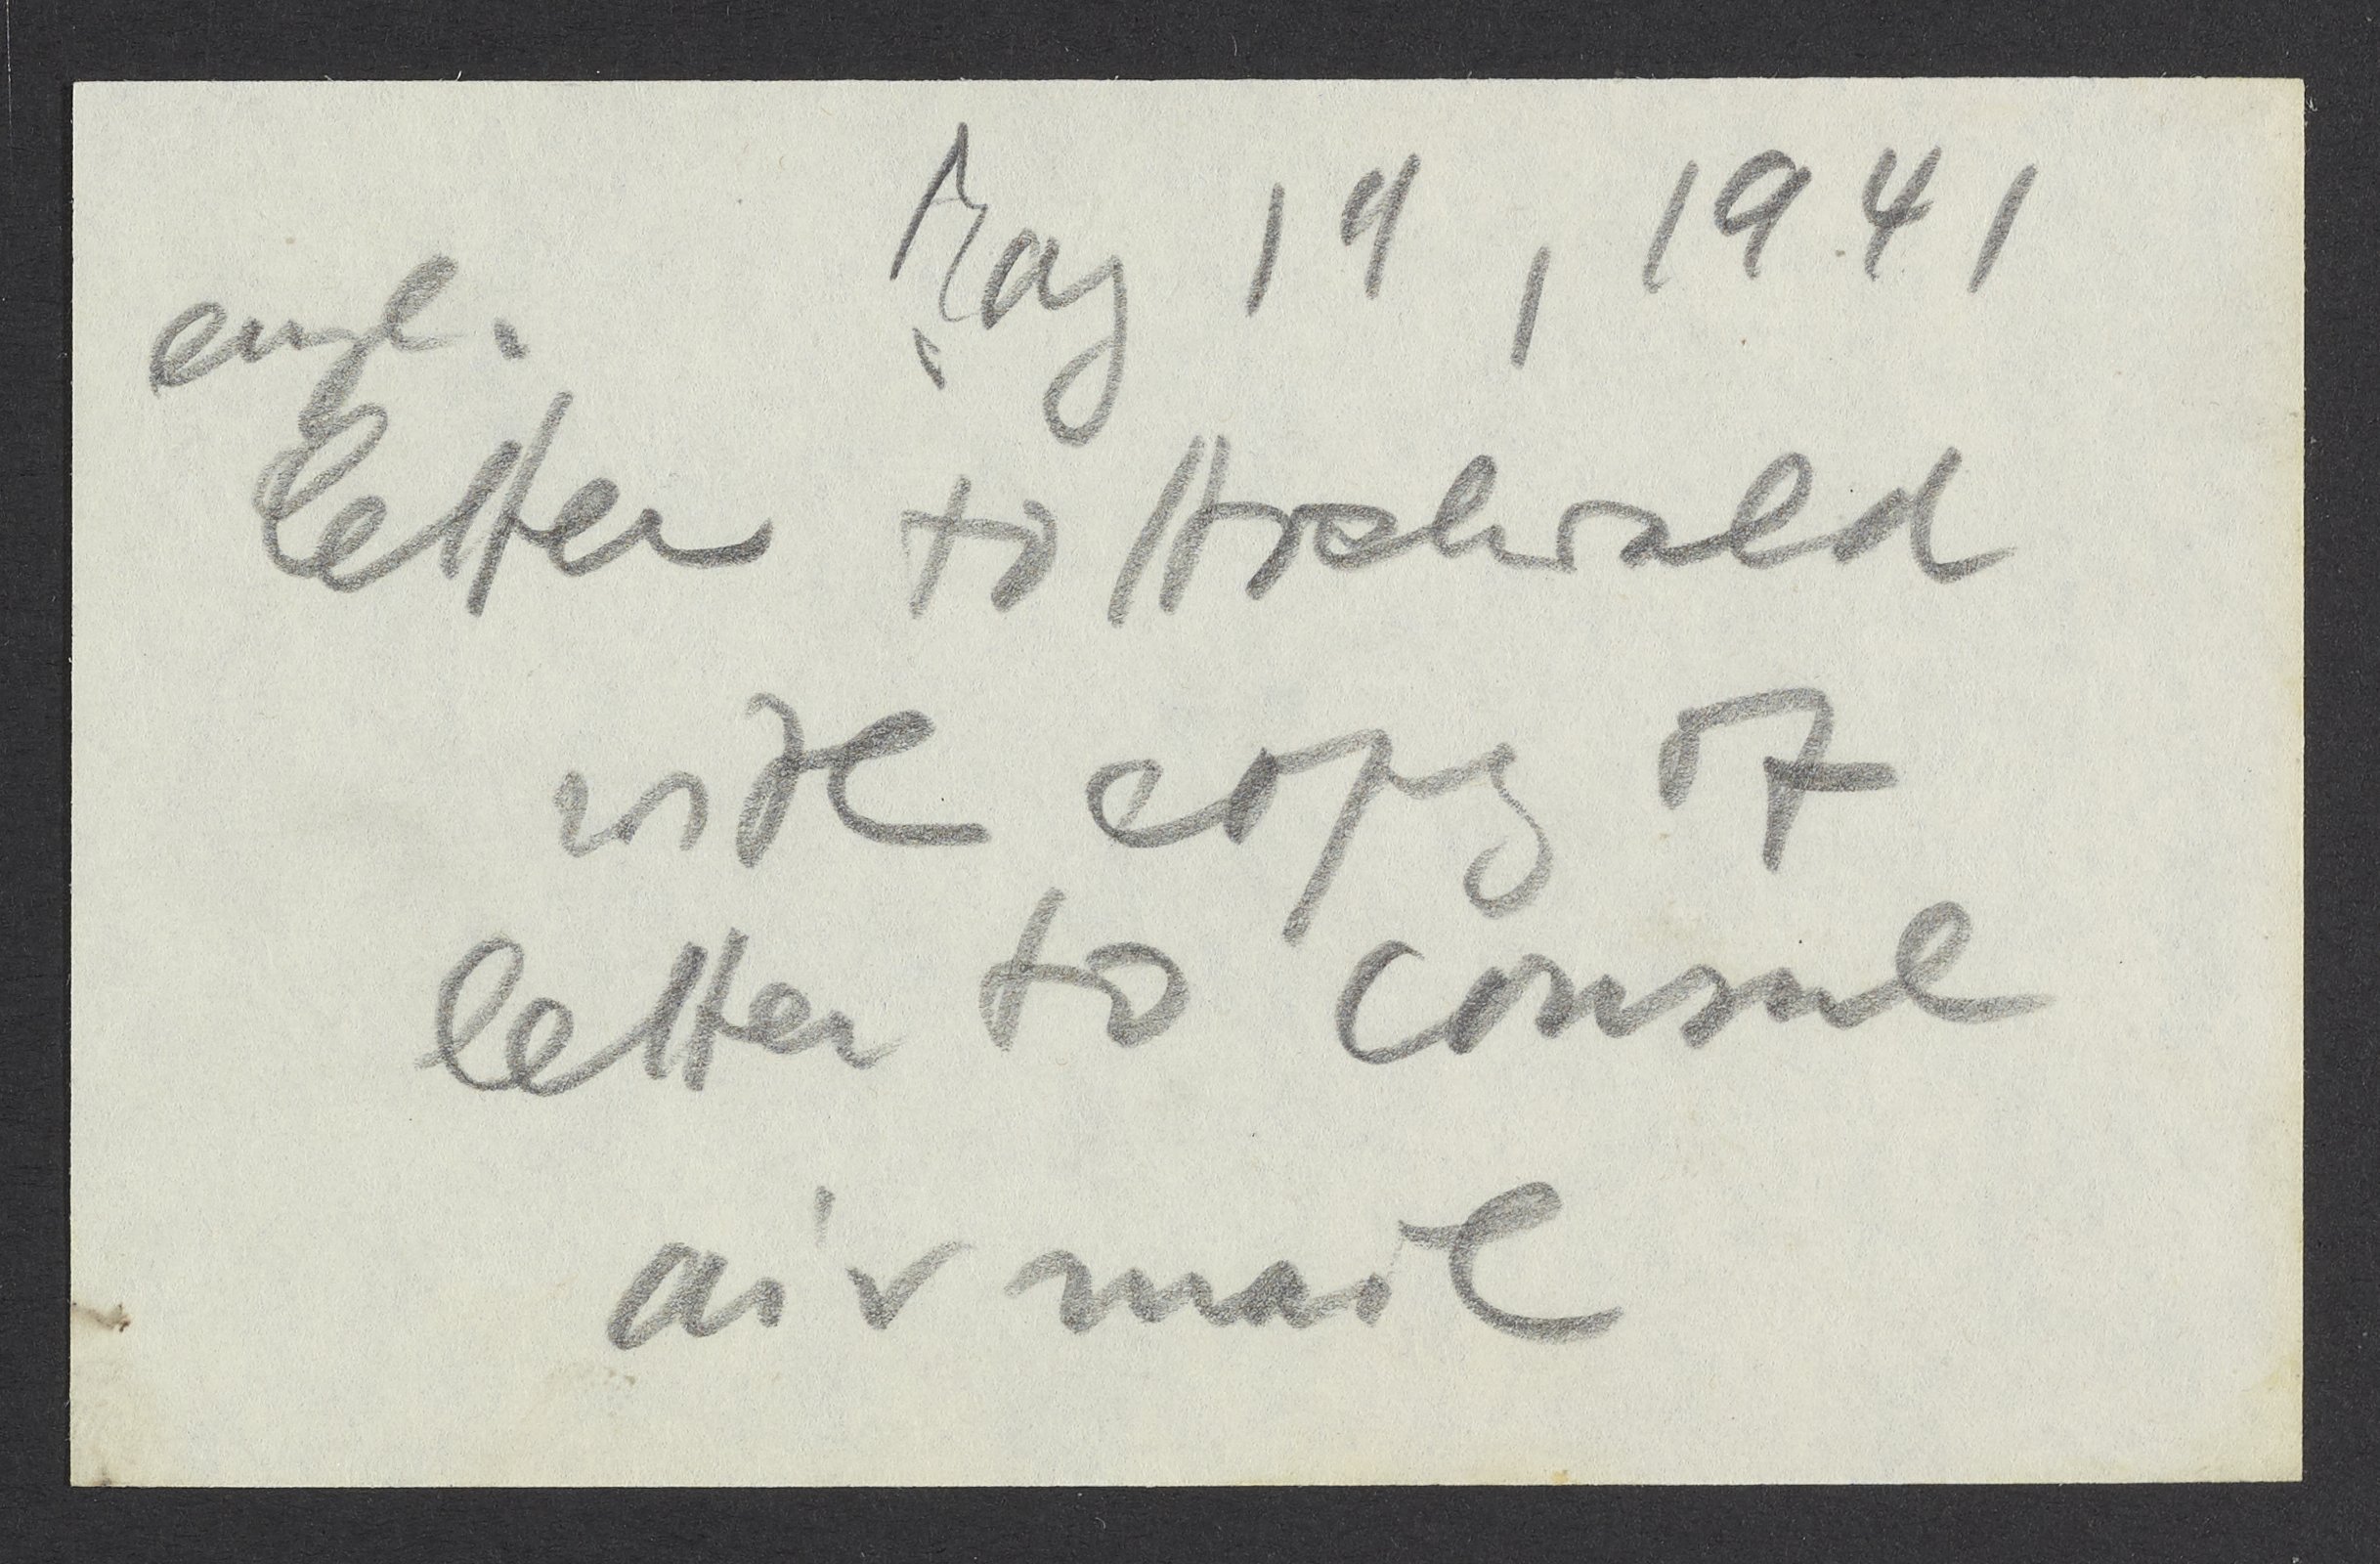 May 19, 1941
engl.
letter to Hochwald
with copy of
letter to Consul
air mail